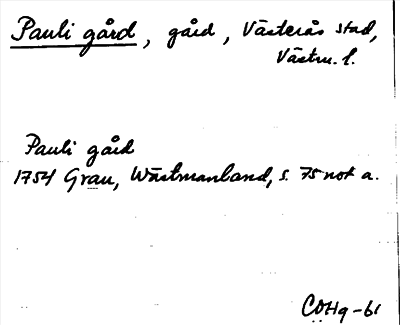 Pauli gård, gård, Västerås stad,
Västm. l.
Pauli gård
1754 Grau, Wästmanland, s. 75 not a.
COHg-61